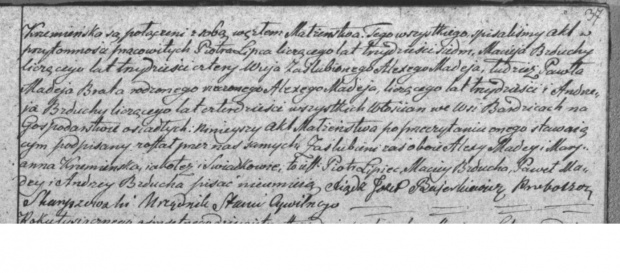 37
Krzemińska są połączeni z sobą węzłem Małżeństwa. Tego wszystkiego spisaliśmy Akt w
przytomności pracowitych Piotra Lipca liczącego lat trzydzieści siedm, Macieja Brduchy
liczącego lat trzydzieści cztery Wuja Zaślubionego Alexego Madeja, tudzież Pawła
Madeja Brata rodzonego Alexego Madeja, liczącego lat trzydzieści i Andrze
ja Brduchy liczącego lat czterdzieści wszystkich Włościan we Wsi Bardzicach na
Gospodarstwie osiadłych: Niniejszy Akt Małżeństwa po przeczytaniu onego stawają
cym podpisany został przez nas samych, Zaślubieni zaś oboie Alexy Madey i Mary
anna Krzemińska, iako też i Świadkowie, to iest Piotr Lipiec, Maciey Brducha, Paweł Ma
dey i Andrzey Brducha pisać nieumieią Xiądz Józef Proboszcz
Skaryszewski Urzędnik Stanu Cywilnego
Roku tysiącznego